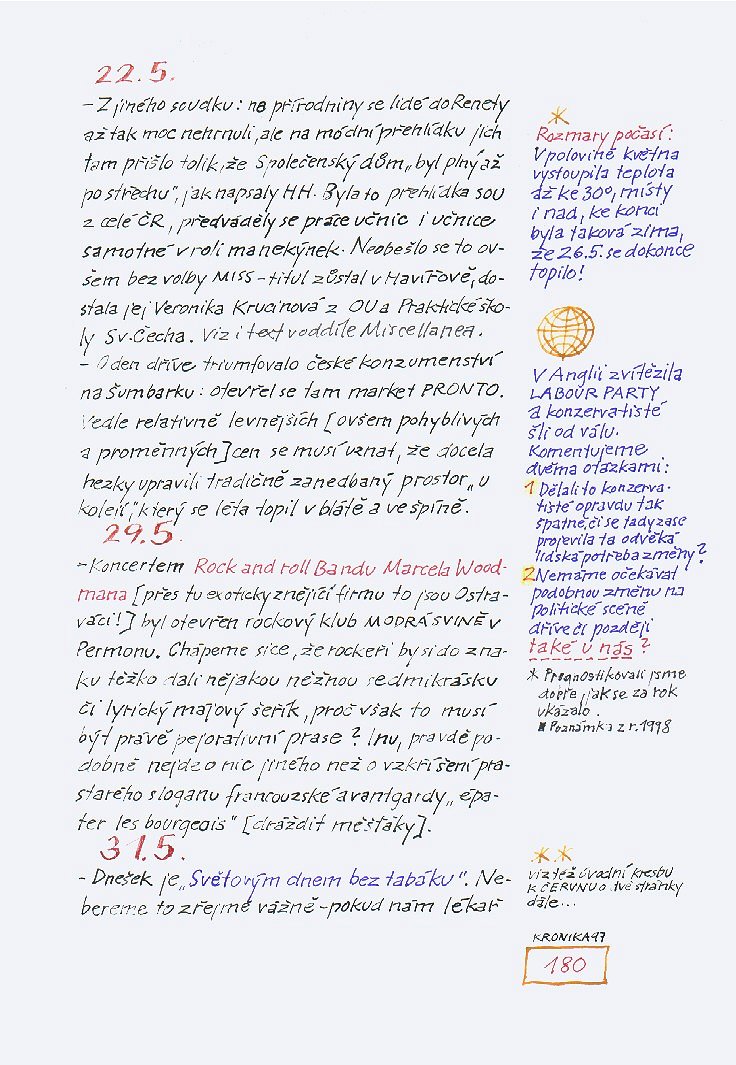 22.5.
– Z jiného soudku: na přírodniny se lidé do Renety
až tak moc nehrnuli, ale na módní přehlídku jich
tam přišlo tolik, že Společenský dům „byl plný až
po střechu", jak napsaly HH. Byla to přehlídka SOU
z celé ČR, předváděly se práce učnic i učnice
samotné v roli manekýnek. Neobešlo se to ov-
šem bez volby MISS – titul zůstal v Havířově, do-
stala jej Veronika Krucinová z OU a Praktické ško-
ly Sv. Čecha. Viz i text v oddíle Miscellanea.
– O den dříve triumfovalo české konzumenství
na Šumbarku: otevřel se tam market PRONTO.
Vedle relativně levnějších [ovšem pohyblivých
a proměnných] cen se musí uznat, že docela
hezky upravili tradičně zanedbaný prostor „u
kolejí," který se léta topil v blátě a ve špíně.
29.5.
– Koncertem Rock and roll Bandu Marcela Wood-
mana [přes tu exoticky znějící firmu to jsou Ostra-
váci!] byl otevřen rockový klub MODRÁ SVINĚ v
Permonu. Chápeme sice, že rockeři by si do zna-
ku těžko dali nějakou něžnou sedmikrásku
či lyrický májový šeřík, proč však to musí
být právě pejorativní prase? Inu, pravděpo-
dobně nejde o nic jiného než o vzkříšení pra-
starého sloganu francouzské avantgardy „épa-
ter les bourgeois" [dráždit měšťáky].
31.5.
– Dnešek je „Světovým dnem bez tabáku". Ne-
bereme to zřejmě vážně – pokud nám lékař
*
Rozmary počasí:
V polovině května
vystoupila teplota
až ke 30°, místy
i nad, ke konci
byla taková zima,
že 26.5. se dokonce
topilo!
V Anglii zvítězila
LABOUR PARTY
a konzervatisté
šli od válu.
Komentujeme
dvěma otázkami:
1 Dělali to konzerva-
tisté opravdu tak
špatně, či se tady zase
projevila ta odvěká
lidská potřeba změny?
2 Nemáme očekávat
podobnou změnu na
politické scéně
dříve či později
také u nás?
* Prognostikovali jsme
dobře, jak se za rok
ukázalo.
■ Poznámka z r. 1998
* *
viz též úvodní kresbu
k ČERVNU o dvě stránky
dále...
KRONIKA 97
180